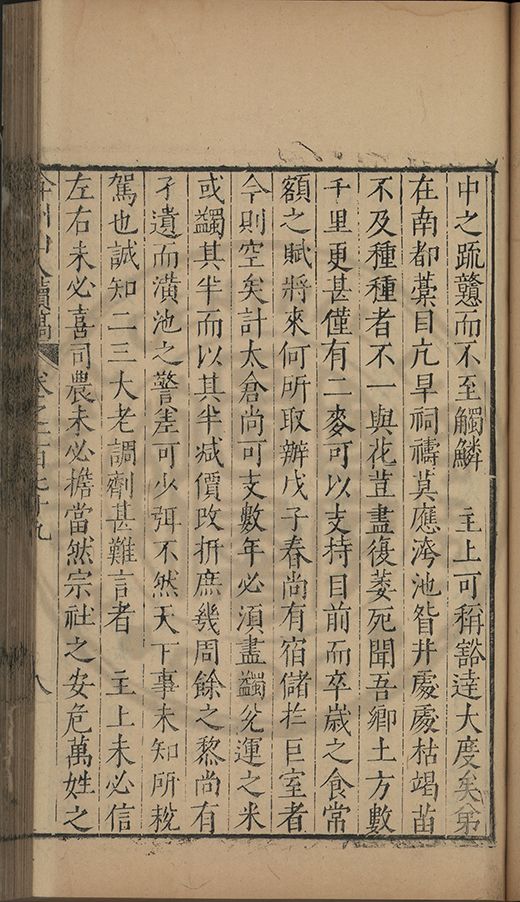 中之䟽戇而不至觸鱗　主上可稱豁達大度矣第
在南都藁目亢旱祠禱莫應洿池眢井處處枯竭苗
不及種種者不一與花荳盡復萎死聞吾鄉土方數
千里更甚僅有二麥可以支持目前而卒歲之食常
額之賦將來何所取辦戊子春尚有宿儲扵巨室者
今則空矣計太倉尚可支數年必須盡蠲兊運之米
或蠲其半而以其半减價改折庶幾周餘之黎尚有
孑遺而潢池之警差可少弭不然天下事未知所稅
駕也誠知二三大老調劑甚難言者　主上未必信
左右未必喜司農未必擔當然宗社之安危萬姓之
弇州山人續稿　卷之一百七十九　八